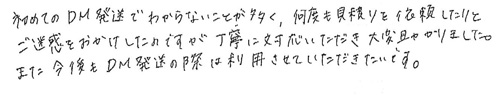 初めてのDM発送でわからないことが多く、何度も見積りを依頼したりと
ご迷惑をおかけしたのですが丁寧に対応いただき大変助かりました。
また今後もDM発送の際は利用させていただきたいです。